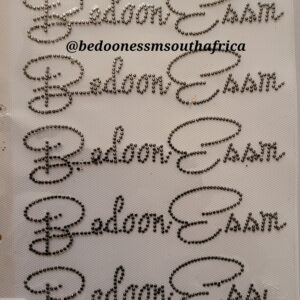 Bedoon Essm
@bedoonessmsouthafrica
Bedoon Essm
Bedoon Essm
Bedoon Essm
Bedoon Essm